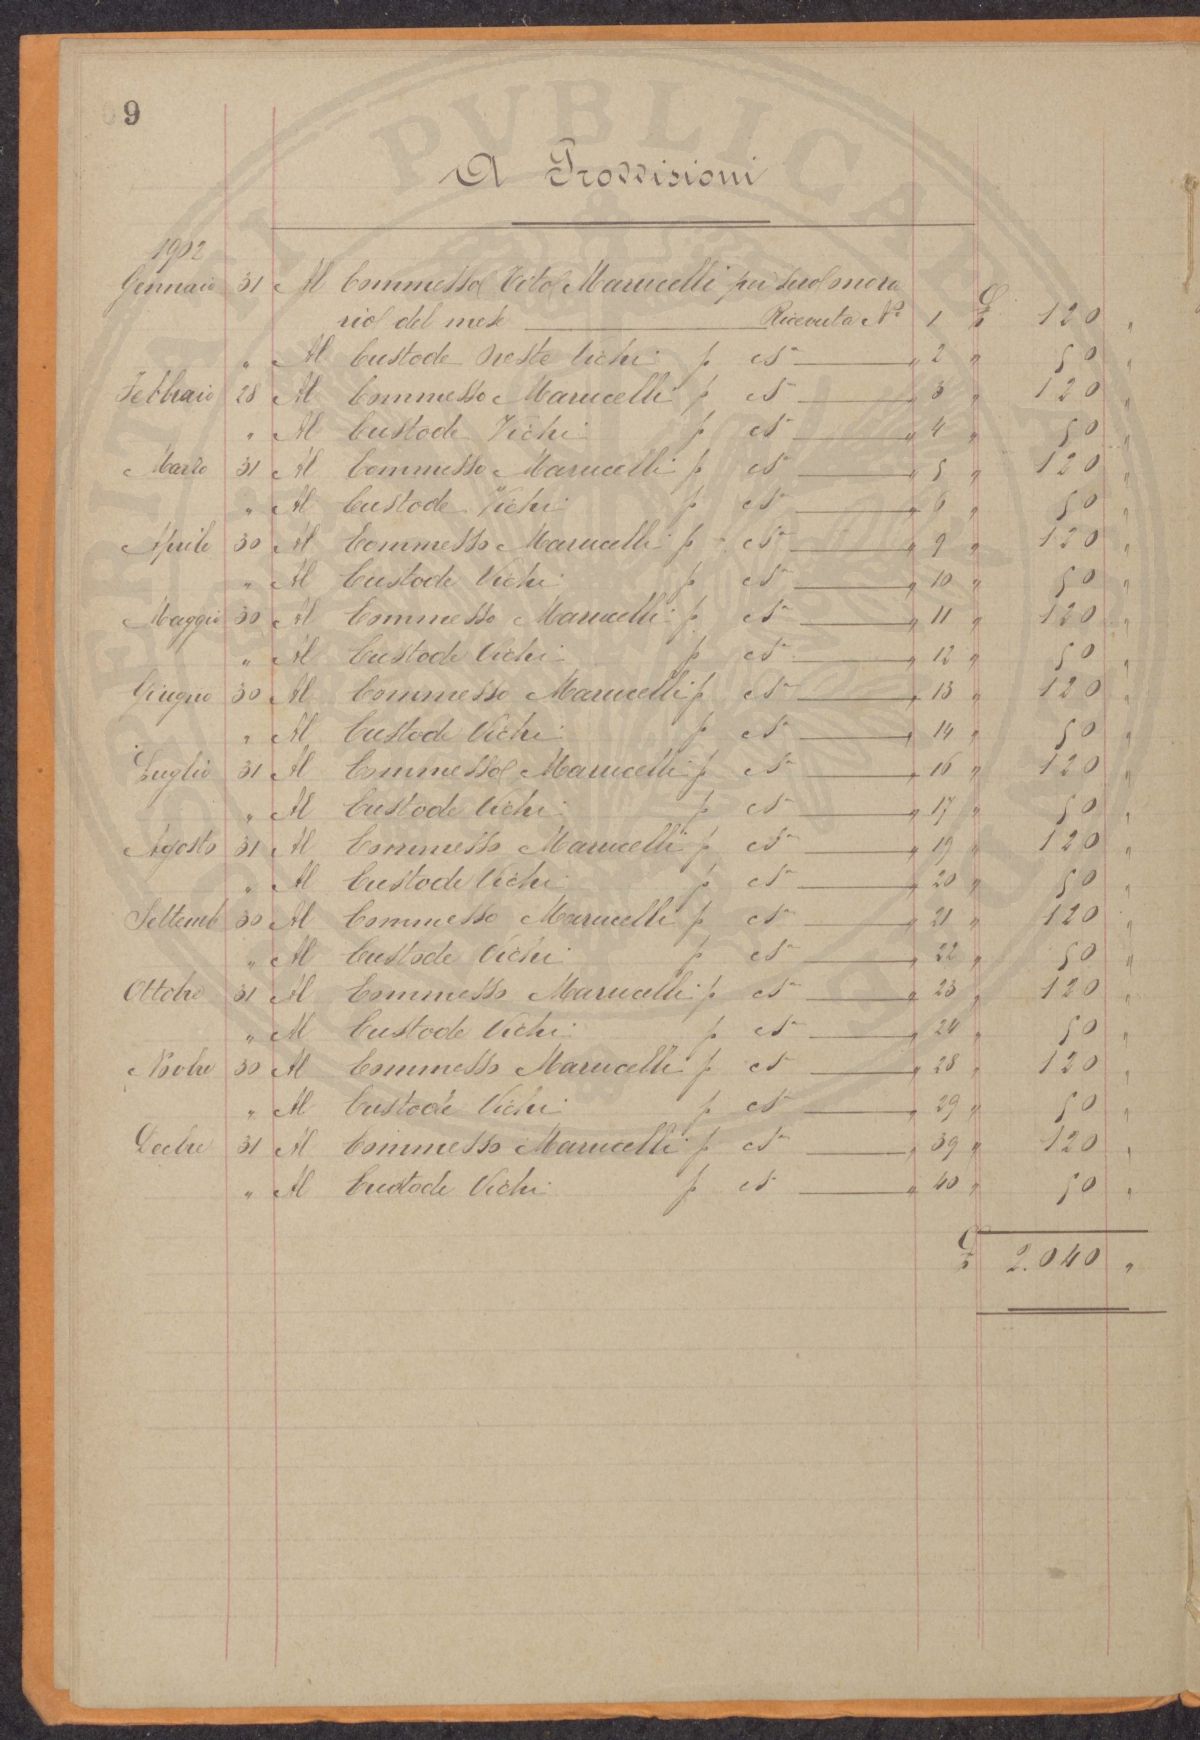 9
A Provvisioni
1902
Gennaio 31 Al Commesso Vito Marucelli per suo onora
rio del mese Ricevuta N° 1 £ 120 "
" Al Custode Oreste Vichi p cs " 2 " 50 "
Febbraio 28 Al Commesso Marucelli p cs " 3 " 120 "
" Al Custode Vichi p cs " 4 " 50 "
Marzo 31 Al Commesso Marucelli p cs " 5 " 120 "
" Al Custode Vichi p cs " 6 " 50 "
Aprile 30 Al Commesso Marucelli p cs " 9 " 120 "
" Al Custode Vichi p cs " 10 " 50 "
Maggio 30 Al Commesso Marucelli p cs " 11 " 120 "
" Al Custode Vichi p cs " 12 " 50 "
Giugno 30 Al Commesso Marucelli p cs " 13 " 120 "
" Al Custode Vichi p cs " 14 " 50 "
Luglio 31 Al Commesso Marucelli p cs " 16 " 120 "
" Al Custode Vichi p cs " 17 " 50 "
Agosto 31 Al Commesso Marucelli p cs " 19 " 120 "
" Al Custode Vichi p cs " 20 " 50 "
Settemb 30 Al Commesso Marucelli p cs " 21 " 120 "
" Al Custode Vichi p cs " 22 " 50 "
Ottobre 31 Al Commesso Marucelli p cs " 23 " 120 "
" Al Custode Vichi p cs " 24 " 50 "
Novbre 30 Al Commesso Marucelli p cs " 28 " 120 "
" Al Custode Vichi p cs " 29 " 50 "
Decbre 31 Al Commesso Marucelli p cs " 39 " 120 "
" Al Custode Vichi p cs " 40 " 50 "
£ 2.040 "